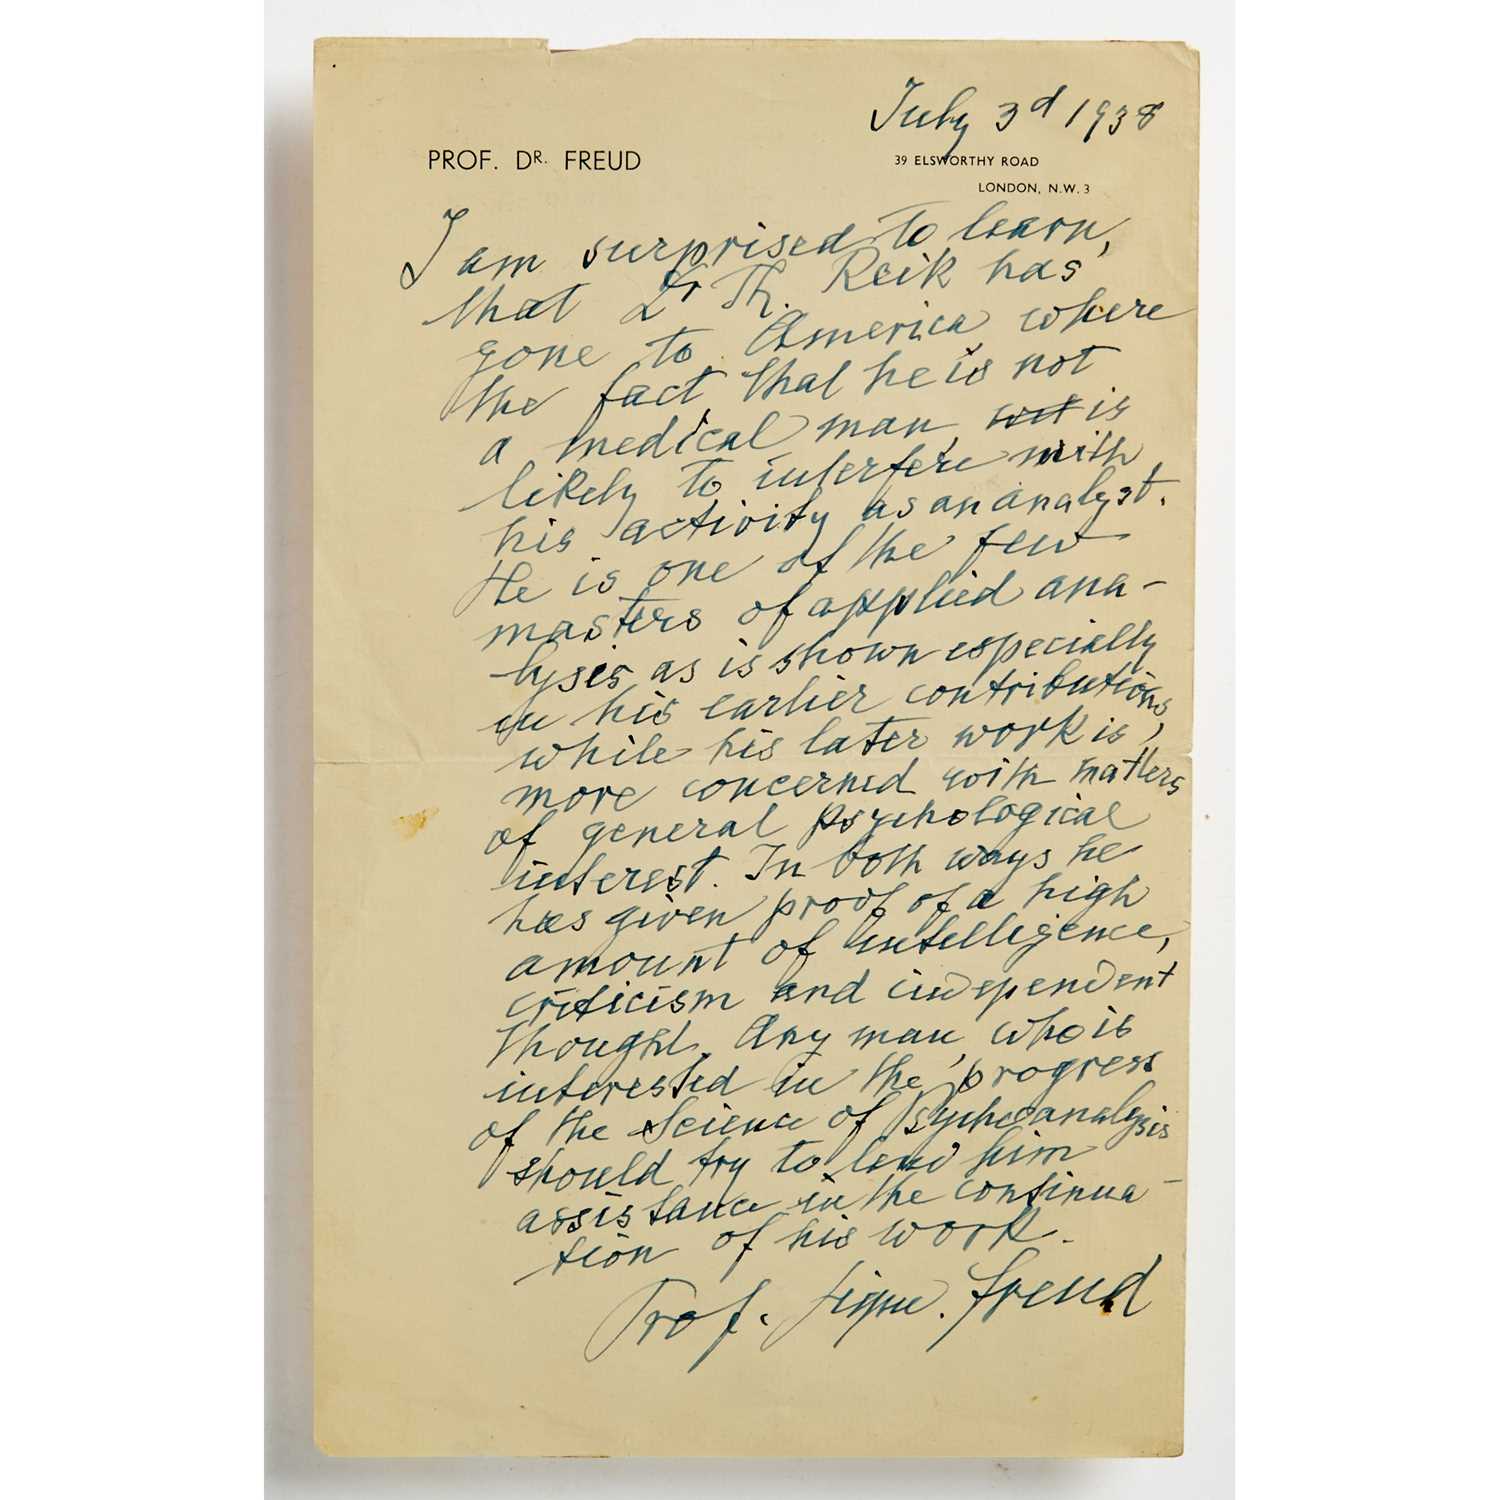 July 3d 1938
PROF. DR. FREUD
39 ELSWORTHY ROAD
LONDON, N.W.3
I am surprised to learn,
that Dr Th. Reik has
gone to America, where
the fact that he is not
a medical man, is
likely to interfere with
his activity as an analyst.
He is one of the few
masters of applied ana-
lysis as is shown especially
in his earlier contributions,
while his later work is
more concerned with matters
of general psychological
interest. In both ways he
has given proof of a high
amount of intelligence,
criticism and independent
thought. Any man, who is
interested in the progress
of the Science of Psychoanalysis
should try to lend him
assistance in the continua-
tion of his work.
Prof. Sigm. Freud